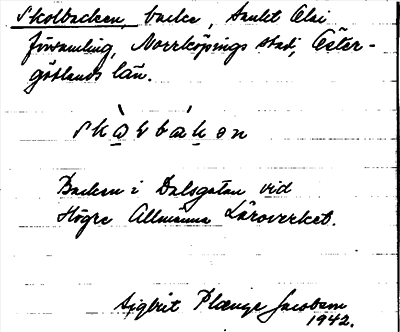 Skolbacken, backe, Sankt Olai
församling, Norrköpings stad, Öster-
götlands län.
skò̱lbàḵən
Backen i Dalsgatan vid
Högre Allmänna Läroverket.
Sigbrit Plænge Jacobson
1942.